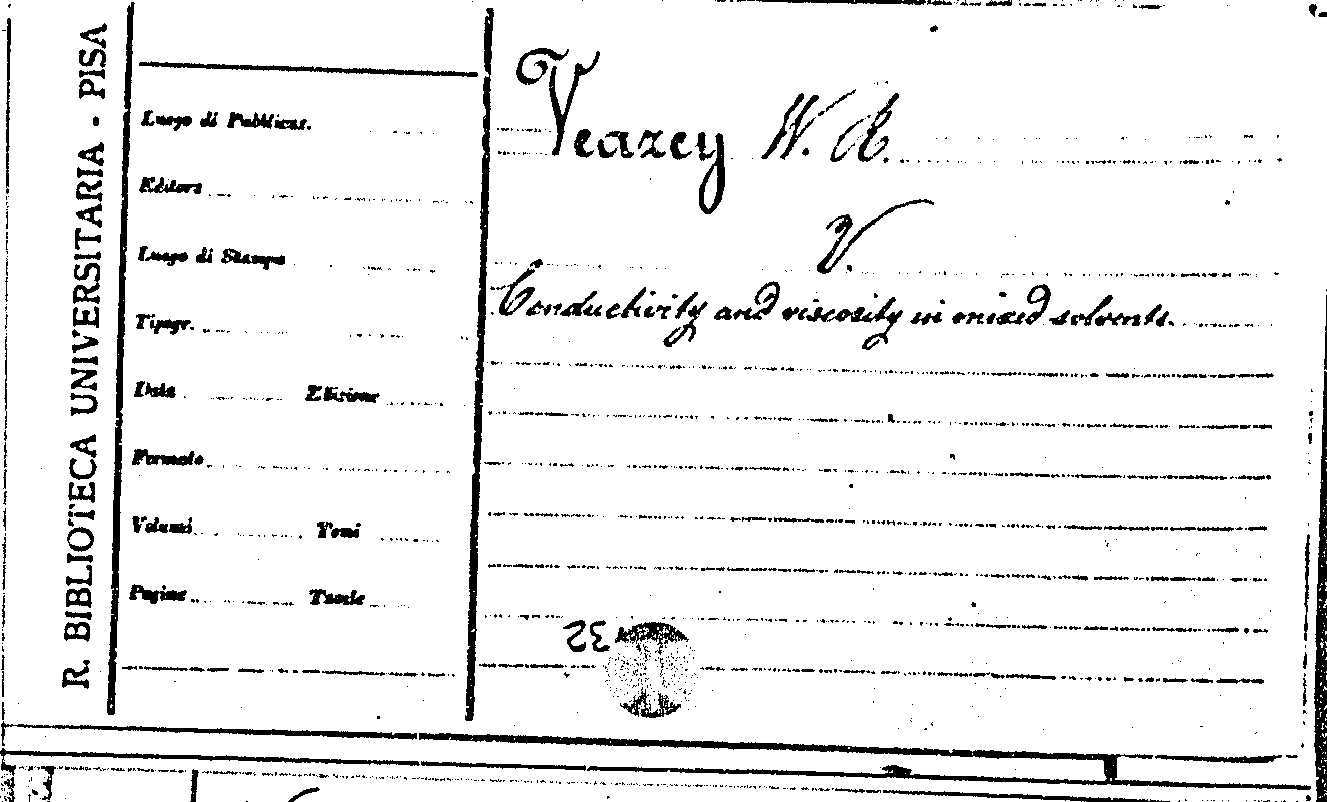 R. BIBLIOTECA UNIVERSITARIA - PISA
Luogo di Pubblicaz.
Editore
Luogo di Stampa
Tipogr.
Data Edizione
Formato
Volumi Tomi
Pagine Tavole
Veazey W. R.
V.
Conductivity and viscosity in mixed solvents.
32